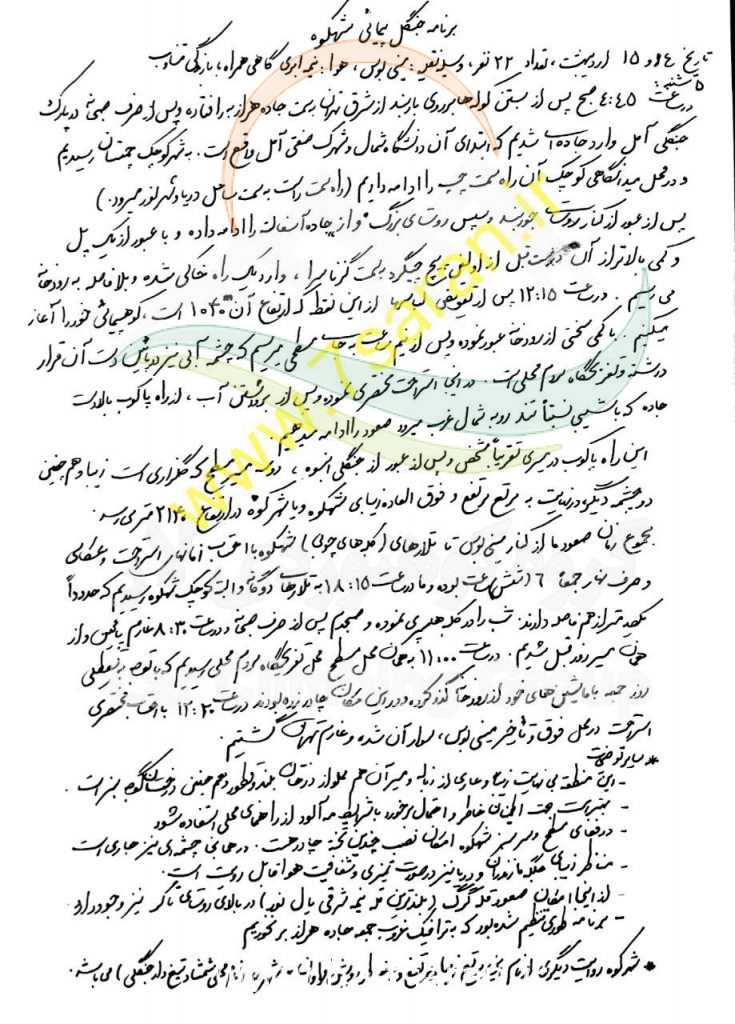 برنامه جنگل پیمائی شهکوه
تاریخ ۱۴ و ۱۵ اردیبهشت، تعداد ۲۲ نفر، وسیله نقلیه: مینی بوس، هوا: نیمه ابری گاهی همراه با بارندگی متناوب
۵ شنبه:
در ساعت ۴:۴۵ صبح پس از بستن کوله‌ها بر روی باربند از شرق تهران بسمت جاده هراز به راه افتاده و پس از صرف صبحانه در پارک
جنگلی آمل وارد جاده‌ای شدیم که ابتدای آن دانشگاه شمال و شهرک صنعتی آمل واقع است. به شهر کوچک چمستان رسیدیم
و در محل میدانگاهی کوچک آن راه سمت چپ را ادامه دادیم (راه سمت راست به سمت ساحل دریا و شهر نور میرود.)
پس از عبور از کنار روستای جوربند و سپس روستای بزرگ و از جاده آسفالته را ادامه داده و با عبور از یک پل
و کمی بالاتر از آن درست قبل از اولین پیچ چپگرد بسمت گزناسرا، وارد یک راه خاکی شده و بلافاصله به رودخانه
می رسیم. در ساعت ۱۲:۱۵ پس از تعویض لباسها از این نقطه که ارتفاع آن ۱۰۴۰ است، کوهپیمائی خود را آغاز
میکنیم. با کمی سختی از رودخانه عبور نموده و پس از نیم ساعت به جای مسطحی میرسیم که چشمه آبی نیز در پائین دست آن قرار
داشته و تفرجگاه مردم محلی است. در اینجا استراحت مختصری نموده و پس از برداشتن آب، از راه پاکوب بالادست
جاده که با شیبی نسبتاً تند رو به شمال غرب میرود صعود را ادامه میدهیم.
این راه پاکوب در مسیری تقریباً مشخص و پس از عبور از جنگلی انبوه، مسطح که گلزاری است زیبا و همچنین
دو چشمه دیگر در نهایت به مرتع مرتفع و فوق العاده زیبای شهکوه و یا شهر کوه در ارتفاع ۲۱۴۰ متری رسد.
مجموع زمان صعود ما از کنار مینی بوس تا تلارهای (کلبه‌های چوبی) شهکوه با احتساب زمانهای استراحت و عکاسی
و صرف نهار جمعاً ۶ (شش) ساعت بوده و ما در ساعت ۱۸:۱۵ به تلارهای دوگانه و البته کوچک شهکوه رسیدیم که حدوداً
یکصد متر از هم فاصله دارند. شب را در کلبه‌ها سپری نموده و صبحدم پس از صرف صبحانه و در ساعت ۸:۳۰ عازم پائین و از
همان مسیر روز قبل شدیم. در ساعت ۱۱:۰۰ به همان محل مسطح محل تفرجگاه مردم محلی رسیدیم که با توجه به تعطیلی
روز جمعه با ماشین های خود از رودخانه گذر کرده و در این مکان چادر زده بودند در ساعت ۱۲:۲۰ با احتساب مختصری
استراحت در محل فوق و تأخیر مینی بوس، سوار آن شده و عازم تهران گشتیم.
* سایر توضیحات
- این منطقه بی نهایت زیبا و عاری از زباله و مسیر آن هم مملو از درختان بلند و قطور و همچنین درختان کوچه سبز است.
- بهتر است جهت اطمینان خاطر و احتمال برخورد با شرایط مه آلود از راهنمای محلی استفاده شود
- در فضای مسطح و سرسبز شهکوه امکان نصب چندین تخته چادر هست. در همانجا چشمه‌ای نیز جاری است
- مناظر زیبای جلگه مازندران و دریا نیز در صورت تمیزی و شفافیت هوا قابل رویت است.
- از اینجا امکان صعود قله گرگ (بلندترین قله نیمه شرقی یال نور) در بالای روستای تاکر نیز وجود دارد
- برنامه طوری تنظیم شده بود که به ترافیک غروب جمعه جاده هراز بر نخوریم
* شهرکوه روایت دیگری از نام این مرتع زیبا
www.7saran.ir